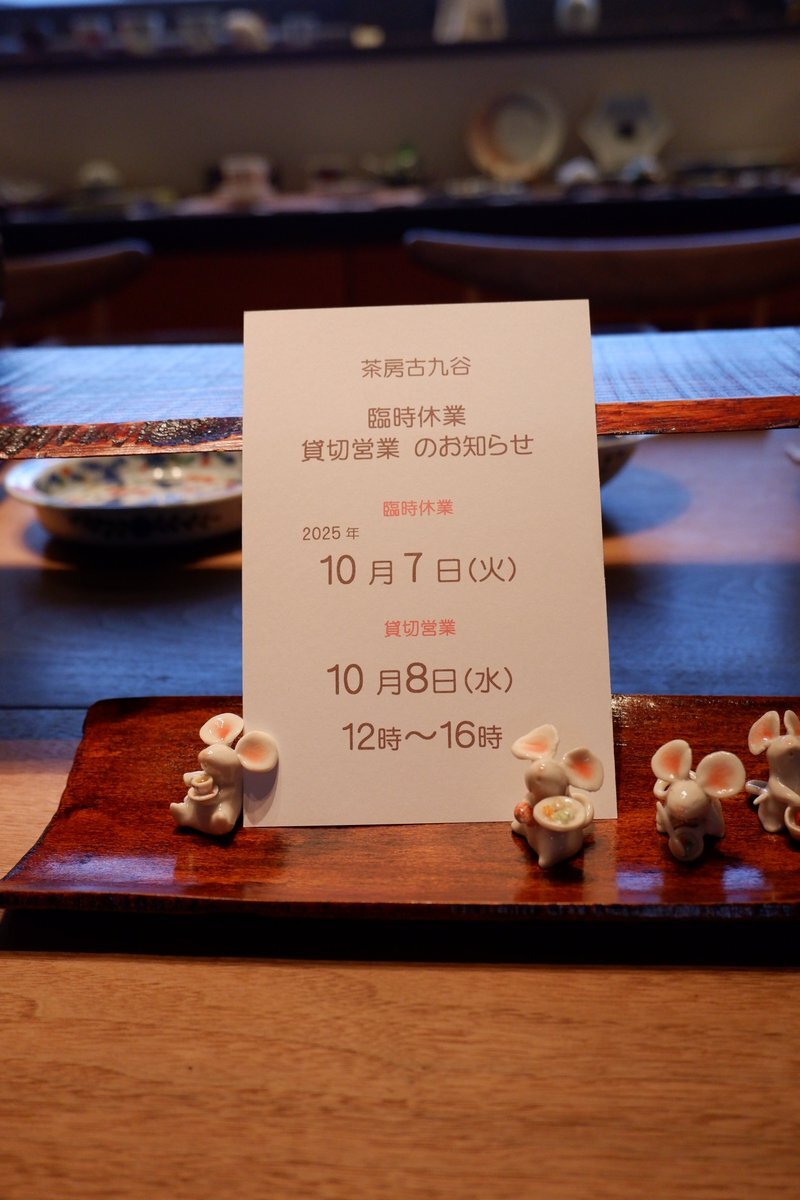 茶房古九谷
臨時休業
貸切営業 のお知らせ
臨時休業
2025 年
10 月 7 日(火)
貸切営業
10 月8日(水)
12時〜16時